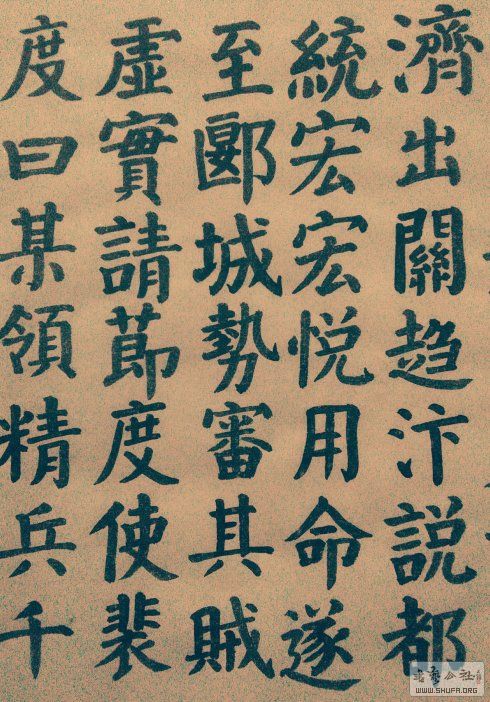 濟出關趋汴説都
統宏宏悦用命遂
至郾城勢審其賊
虚實請莭度使裴
度曰某領精兵千
WWW.SHUFA.ORG